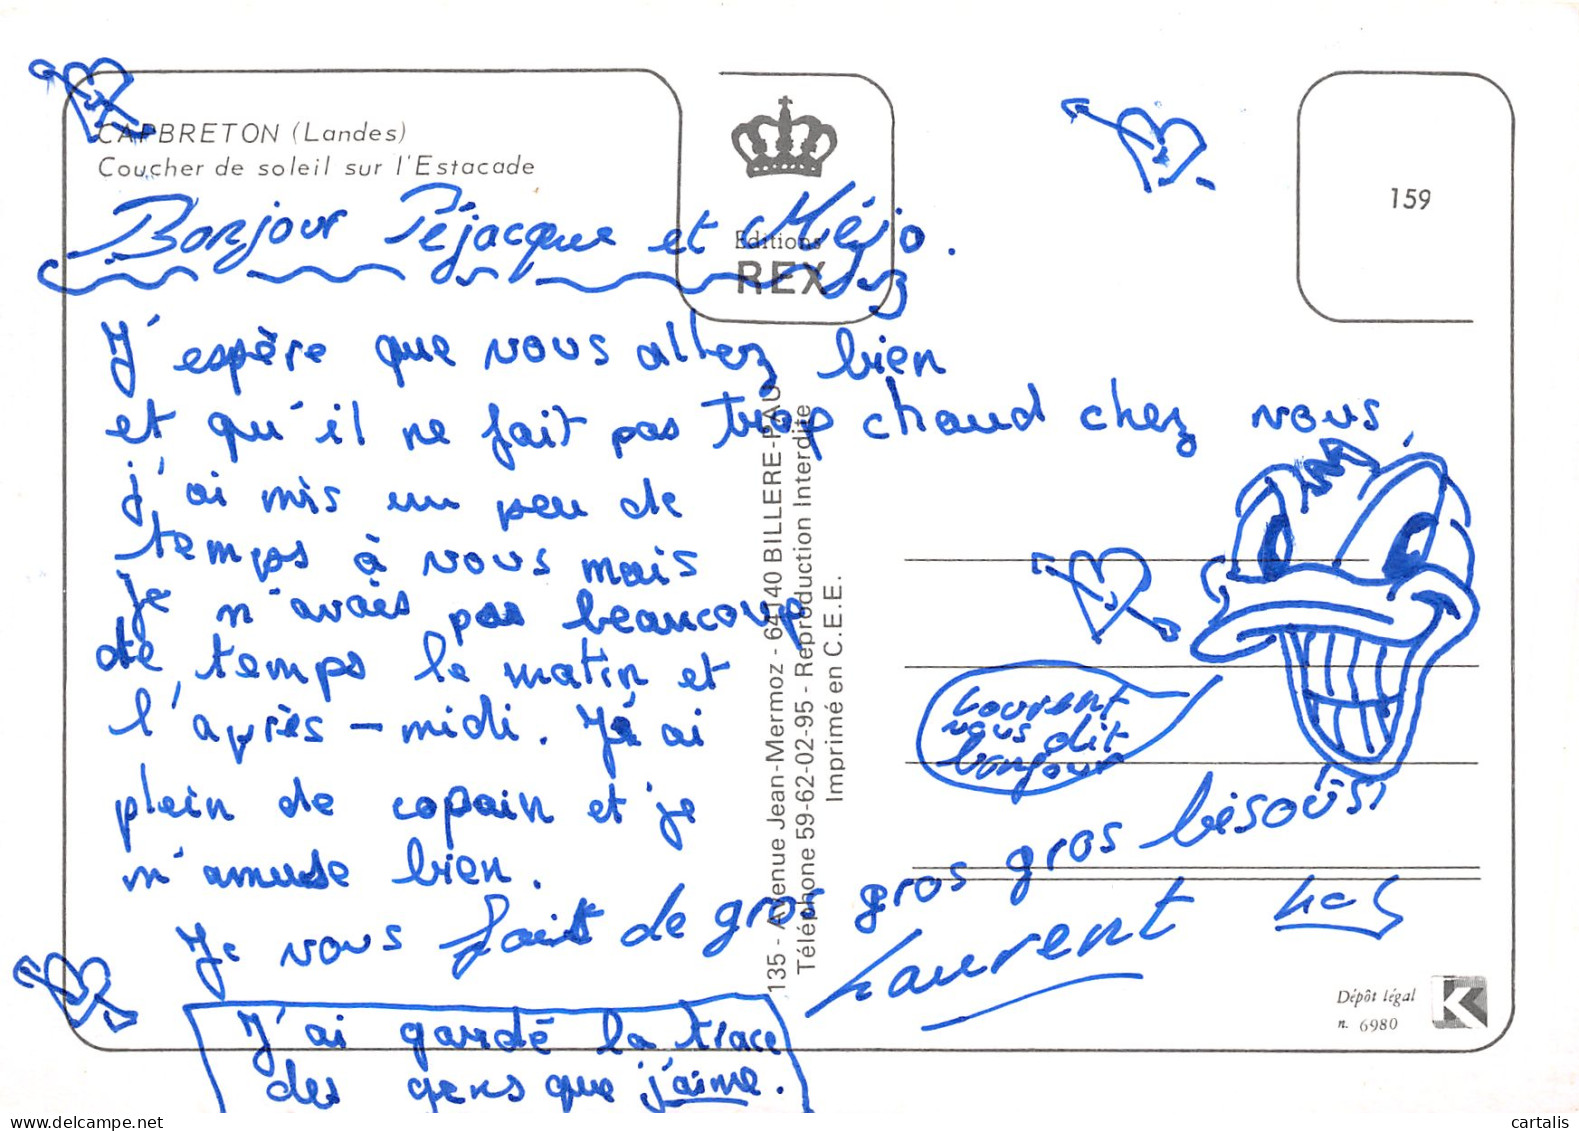 CAPBRETON (Landes)
Coucher de soleil sur l'Estacade
Editions
REX
159
Bonjour Péjacque et Méjo.
J'espère que vous allez bien
et qu'il ne fait pas trop chaud chez vous,
j'ai mis un peu de
temps à vous mais
je n'avais pas beaucoup
de temps le matin et
l'après-midi. J'ai
plein de copain et je
m'amuse bien.
Je vous fait de gros gros gros bisous!
Laurent
J'ai gardé la trace
des gens que j'aime.
Laurent
vous dit
bonjour
135 - Avenue Jean-Mermoz - 64140 BILLERE-PAU
Téléphone 59-62-02-95 - Reproduction Interdite
Imprimé en C.E.E.
Dépôt légal
n. 6980
K
cartalis